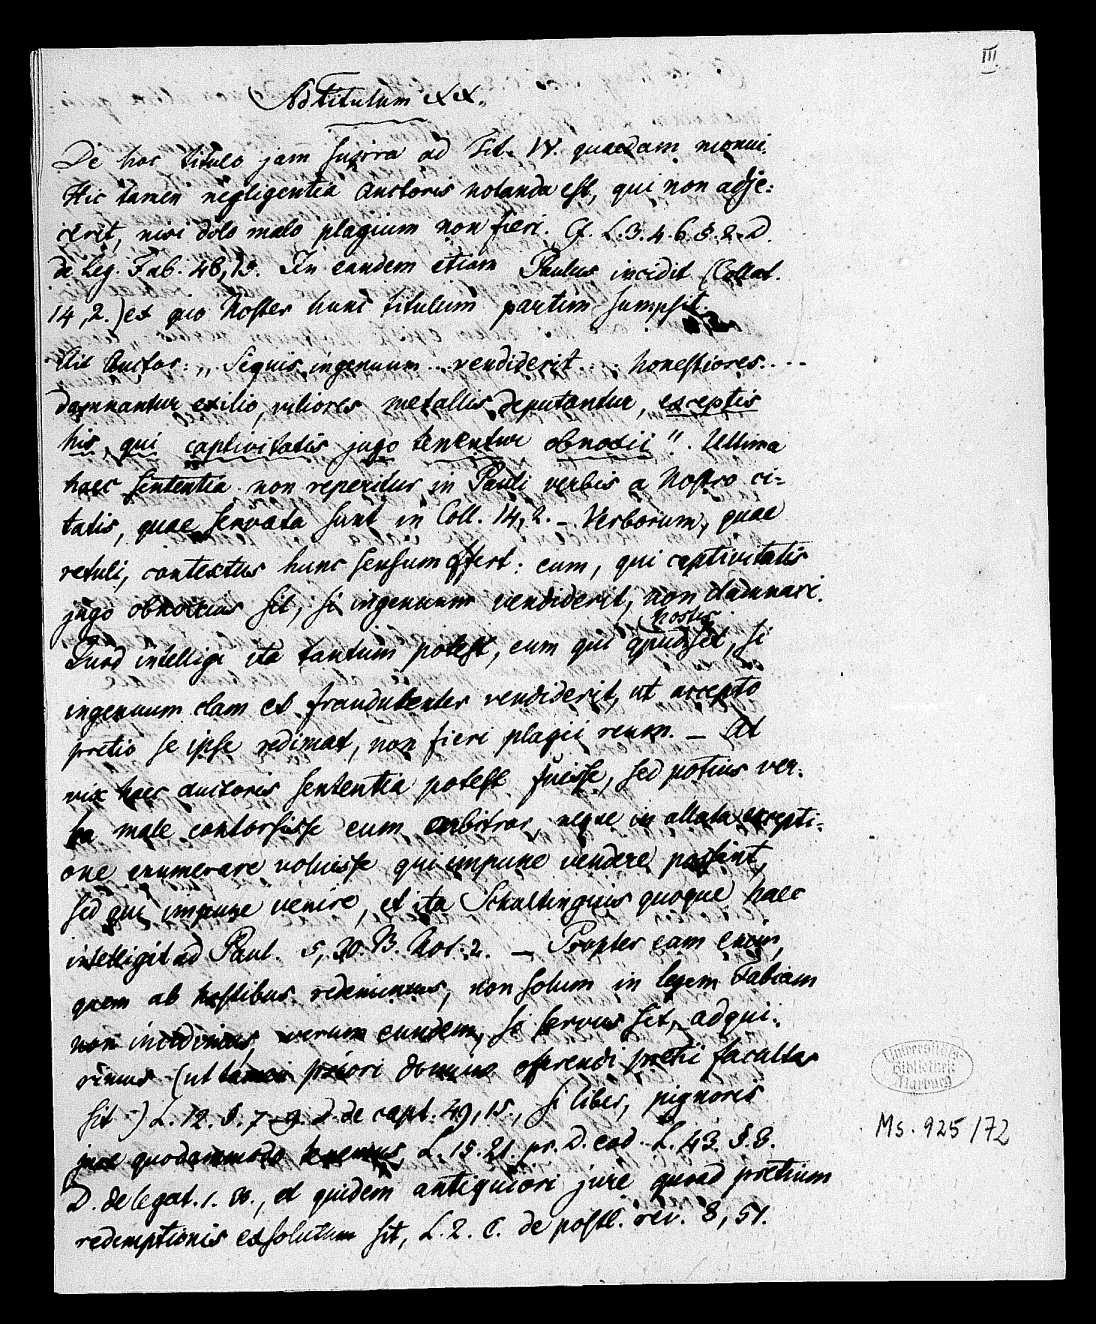 III
Ad Titulum XX.
De hoc titulo jam supra ad Tit. IV. quaedam monui.
Hic tamen negligentia auctoris notanda est, qui non adje-
cerit, nisi dolo malo plagium non fieri. Cf. L. 3. 4. 6. §. 2. D.
de Leg. Fab. 48, 15. In eandem etiam Paulus incidit (Collat.
14, 2.) ex quo Noster hunc titulum partim sumpsit.
Ait Auctor: „ Siquis ingenuum ... vendiderit ... honestiores ....
damnantur exilio, viliores metallis deputantur, exceptis
his, qui captivitatis jugo tenentur obnoxii". Ultima
haec sententia non reperitur in Pauli verbis a Nostro ci-
tatis, quae servata sunt in Coll. 14, 2. – Verborum, quae
retuli, contextus hunc sensum offert: eum, qui captivitatis
jugo obnoxius sit, si ingenuum vendiderit, non damnari.
Quod intelligi ita tantum potest, eum qui apud hostes sit, si
ingenuum clam et fraudulenter vendiderit, ut accepto
pretio se ipse redimat, non fieri plagii reum. – At
vix haec auctoris sententia potest fuisse, sed potius ver-
ba male contorsisse eum arbitror, neque in allata excepti-
one enumerare voluisse qui impune vendere possint,
sed qui impune venire, et ita Schultingius quoque haec
intelligit ad Paul. 5, 30. B. Not. 2. – Propter eam enim,
quem ab hostibus redemimus, non solum in legem Fabiam
non incidimus, verum eundem, si servus sit, adqui-
rimus (ut tamen priori domino offerendi pretii facultas
sit) L. 12. §. 7–9. D. de capt. 49, 15., si liber, pignoris
jure quodammodo tenemus L. 15. 21. pr. D. eod. L. 43. §. 3.
D. de legat. 1. 30., et quidem antiquiori jure quoad pretium
redemptionis exsolutum sit, L. 2. C. de postl. rev. 8, 51.
Universitäts-
Bibliothek
Marburg
Ms. 925/72